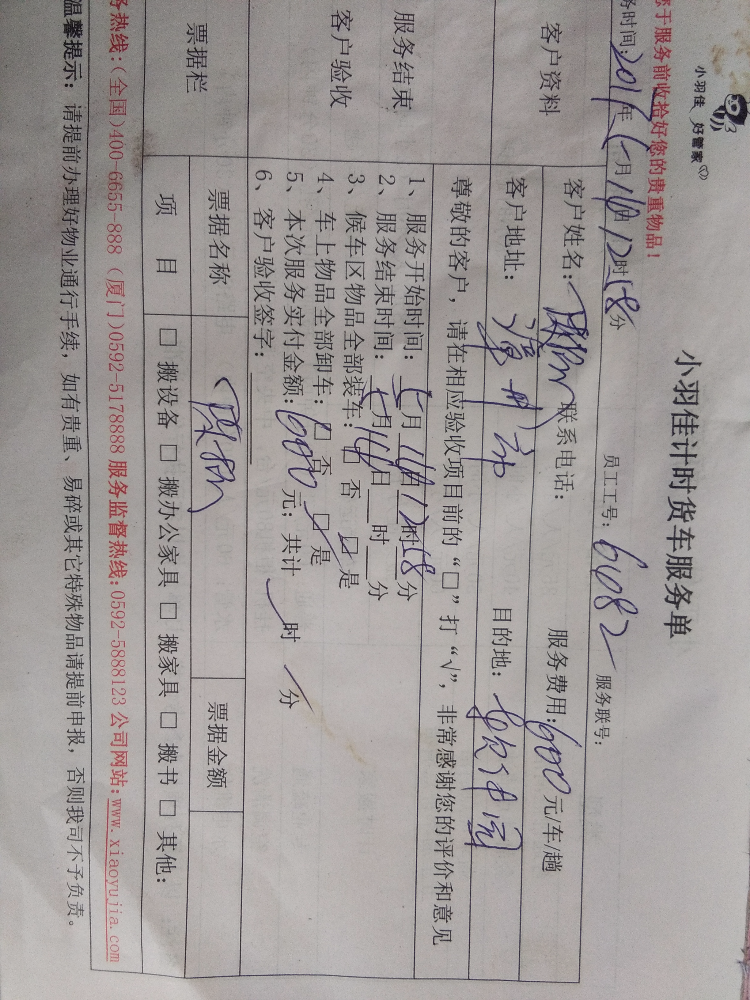 小羽佳 好管家
小羽佳计时货车服务单
您于服务前收拾好您的贵重物品!
务时间: 年5月16日12时58分 员工工号: 6682 服务联号:
客户资料
客户姓名: 联系电话: 服务费用: 600元/车/趟
客户地址: 漳州 目的地:
尊敬的客户,请在相应验收项目前的“□”打“√”,非常感谢您的评价和意见
服务结束
客户验收
1、服务开始时间: 5月16日12时58分
2、服务结束时间: 5月16日 时 分
3、候车区物品全部装车: □否 ☑是
4、车上物品全部卸车: □否 ☑是
5、本次服务实付金额: 600元; 共计 时 分
6、客户验收签字:
票据栏
票据名称 票据金额
项 目 □ 搬设备 □ 搬办公家具 □ 搬家具 □ 搬书 □ 其他:
务热线:(全国)400-6655-888 (厦门)0592-5178888 服务监督热线:0592-5888123 公司网站:www.xiaoyujia.com
温馨提示: 请提前办理好物业通行手续,如有贵重、易碎或其它特殊物品请提前申报,否则我司不予负责。